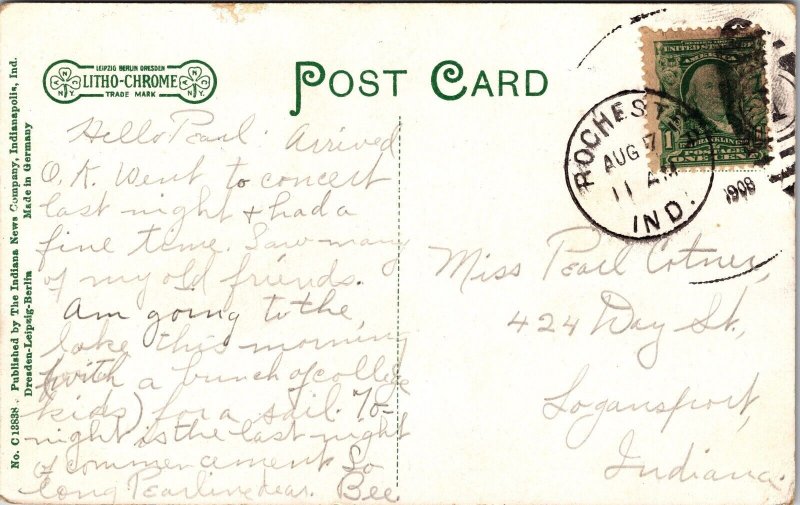 No. C 12838. Published by The Indiana News Company, Indianapolis, Ind.
Dresden-Leipzig-Berlin Made in Germany
LEIPZIG BERLIN DRESDEN
LITHO-CHROME
TRADE MARK
A N C N.Y.
A N C N.Y.
POST CARD
ROCHESTER
AUG 7
11 AM
IND.
1908
UNITED STATES OF
AMERICA
FRANKLIN
POSTAGE
ONE CENT
Hello Pearl. Arrived
O.K. Went to concert
last night & had a
fine time. Saw many
of my old friends.
Am going to the
lake this morning
(with a bunch of college
kids) for a sail. To-
night is the last night
of commencement So
long Pearline dear. Bee
Miss Pearl Cotner,
424 Day St.,
Logansport,
Indiana.